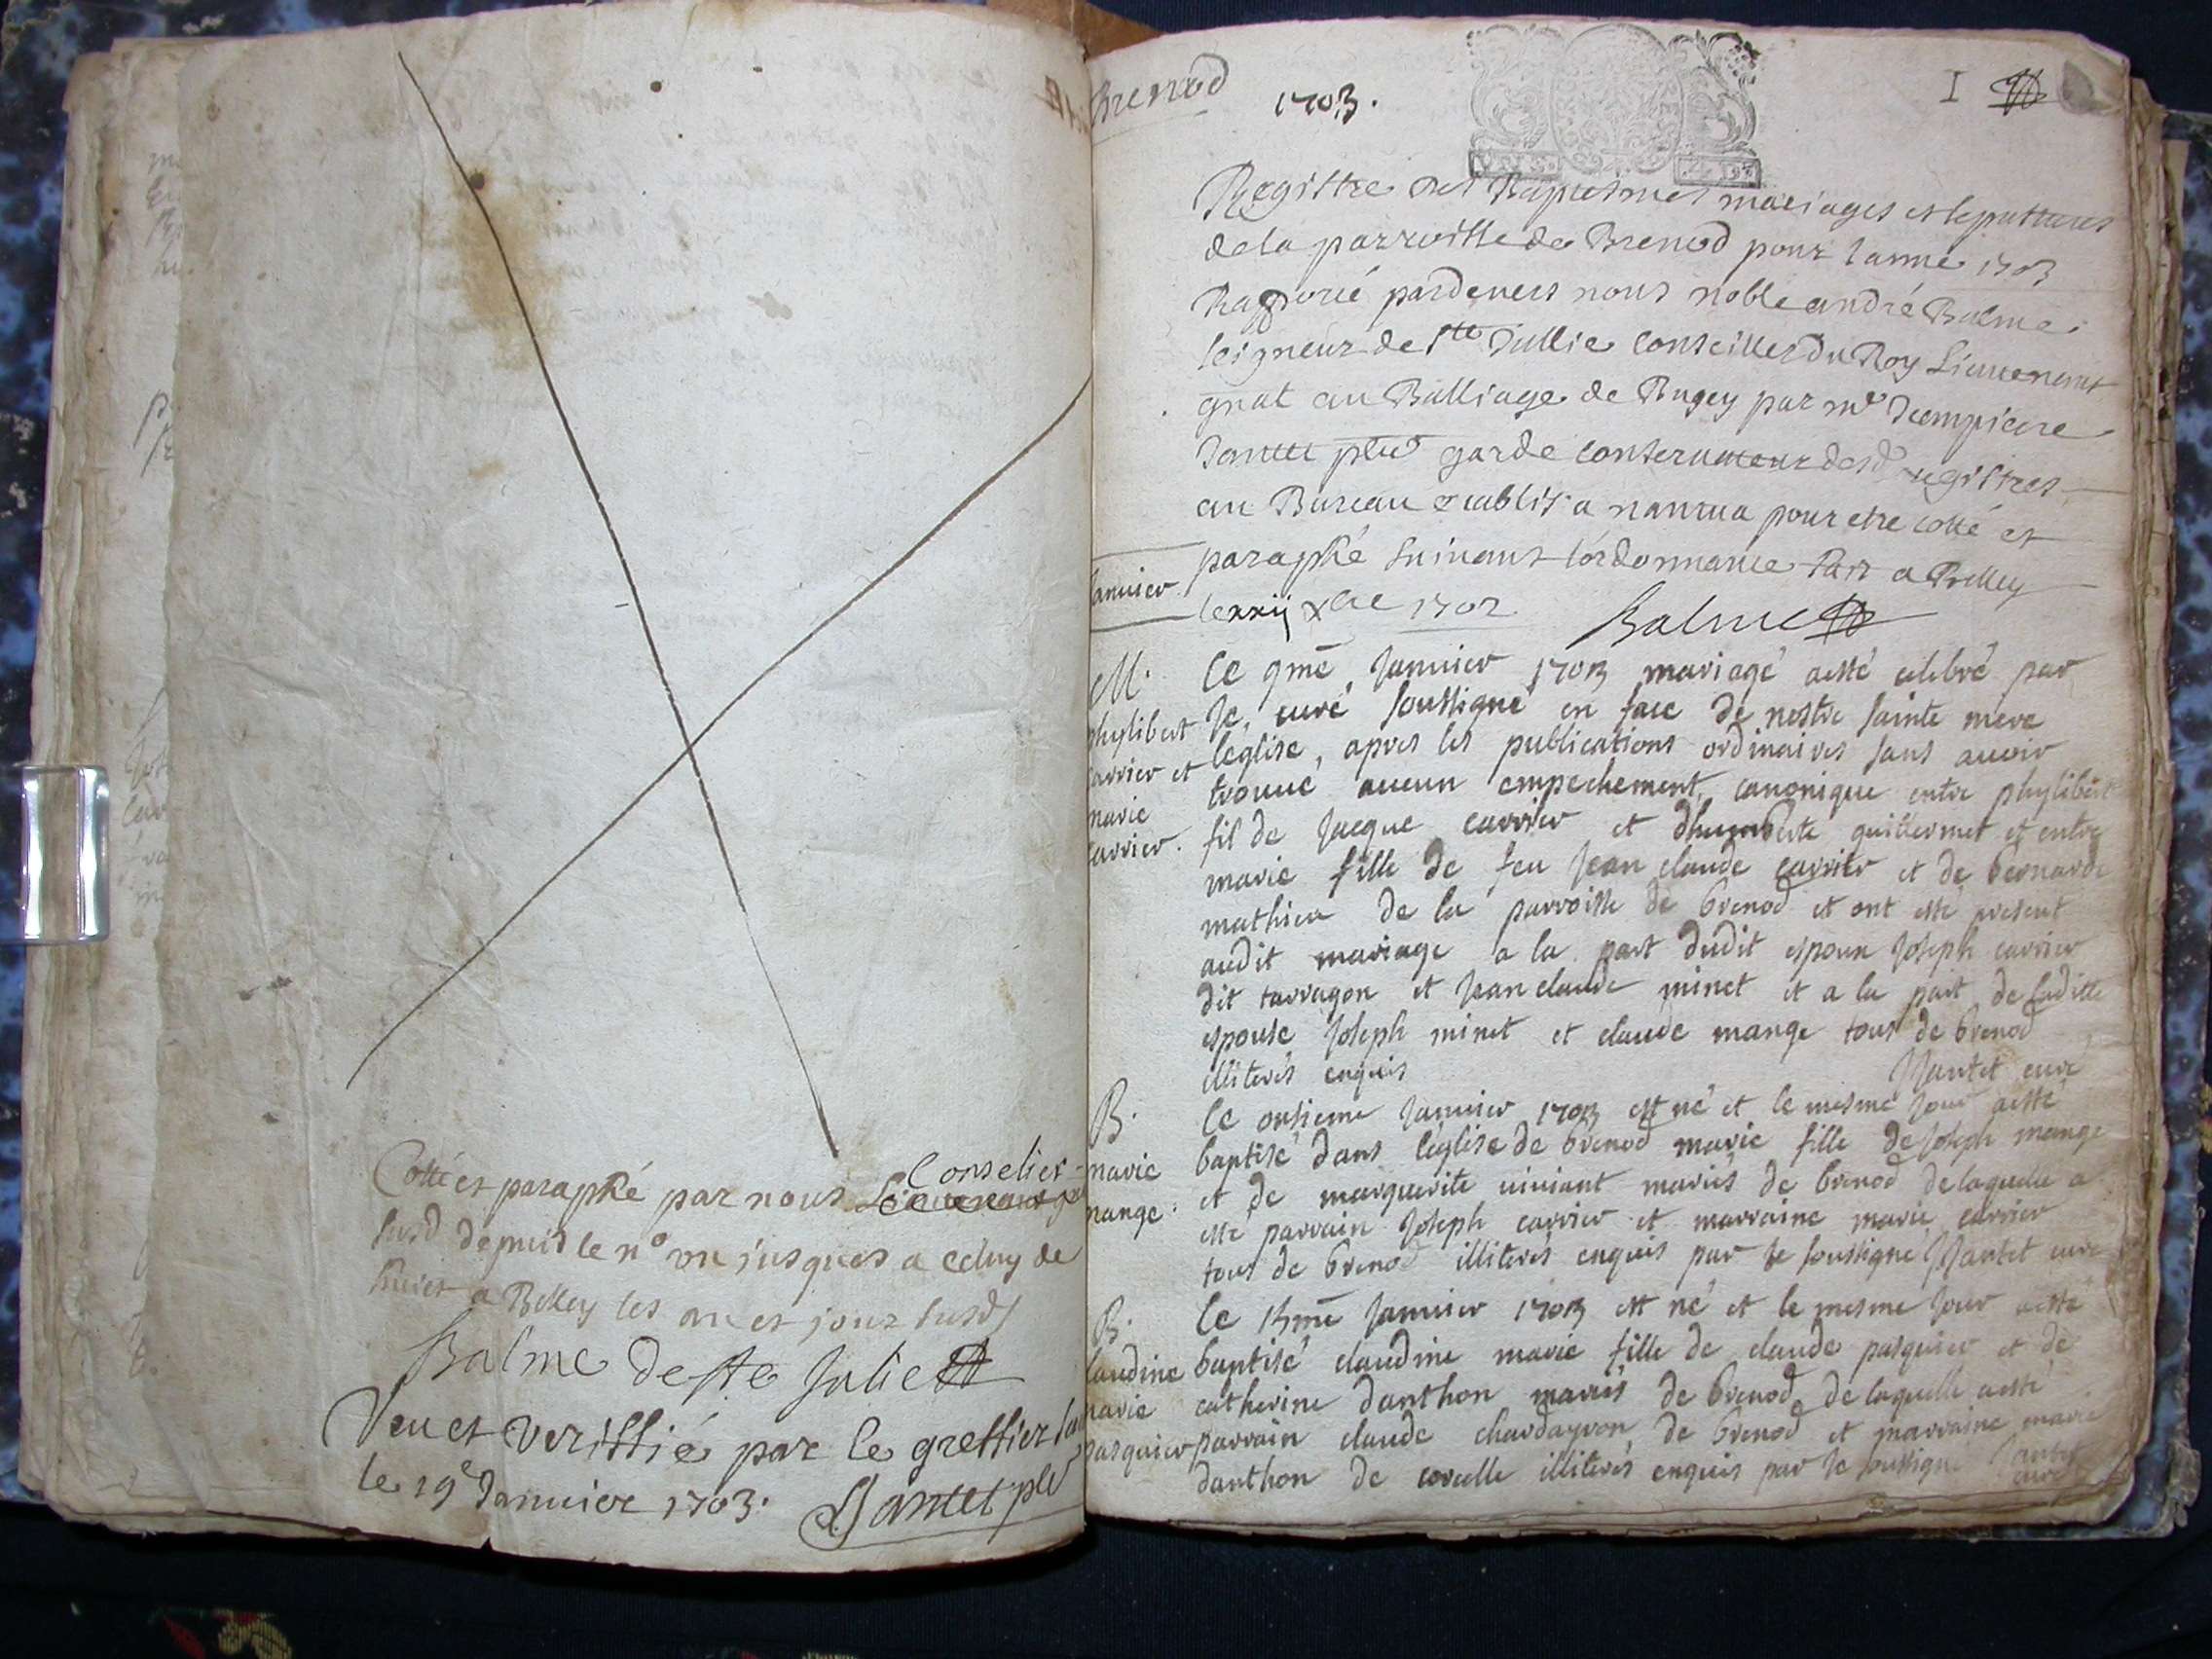 Cotté et paraphé par nous Lieutenant gal Conselier
susd depuis le n° un jusques a celuy de
a Belley les an et jour susds
Balme de ste Julie
Veu et veriffié par le greffier
le 19e Janvier 1703. Jantet pbr
Brenod
1703.
I
Registre des Baptesmes mariages et sepultures
de la parroisse de Brenod pour lanné 1703
Rapporté pardevers nous noble andré Balme
seigneur de ste Jullie Conseiller du Roy Lieutenant
gnal au Balliage de Bugey par me
Jantet pbr garde conservateur desd registres
au Bureau establis a nantua pour etre cotté et
paraphé suivant lordonnance fait a Belley
le xxij xbre 1702
Balme
Januier
M.
phylibert
carrier et
marie
carrier.
le 9me Januier 1703 mariage a esté celebré par
Je, curé soussigné en face de nostre sainte mere
leglise, apres les publications ordinaires sans auoir
trouué aucun empechement canonique entre phylibert
fil de Jacque carrier et dhumberte guillermet et entre
marie fille de feu Jean claude carrier et de bernarde
mathieu de la parroisse de brenod et ont esté present
audit mariage a la part dudit espoux Joseph carrier
dit tarragon et Jean claude minet et a la part de laditte
espouse Joseph minet et claude mange tous de brenod
illiterés enquis Jantet curé
B.
marie
mange.
le onsieme Januier 1703 est né et le mesme Jour a esté
baptisé dans léglise de brenod marie fille de Joseph mange
et de marguerite uiuiant mariés de brenod de laquelle a
esté parrain Joseph carrier et marraine marie carrier
tous de brenod illiterés enquis par Je soussigné Jantet curé
B.
claudine
marie
pasquier
le 13me Januier 1703 est né et le mesme Jour a esté
baptisé claudine marie fille de claude pasquier et de
catherine danthon mariés de brenod de laquelle a esté
parrain claude chardayron de brenod et marraine marie
danthon de corcelle illiterés enquis par Je soussigné Jantet
curé